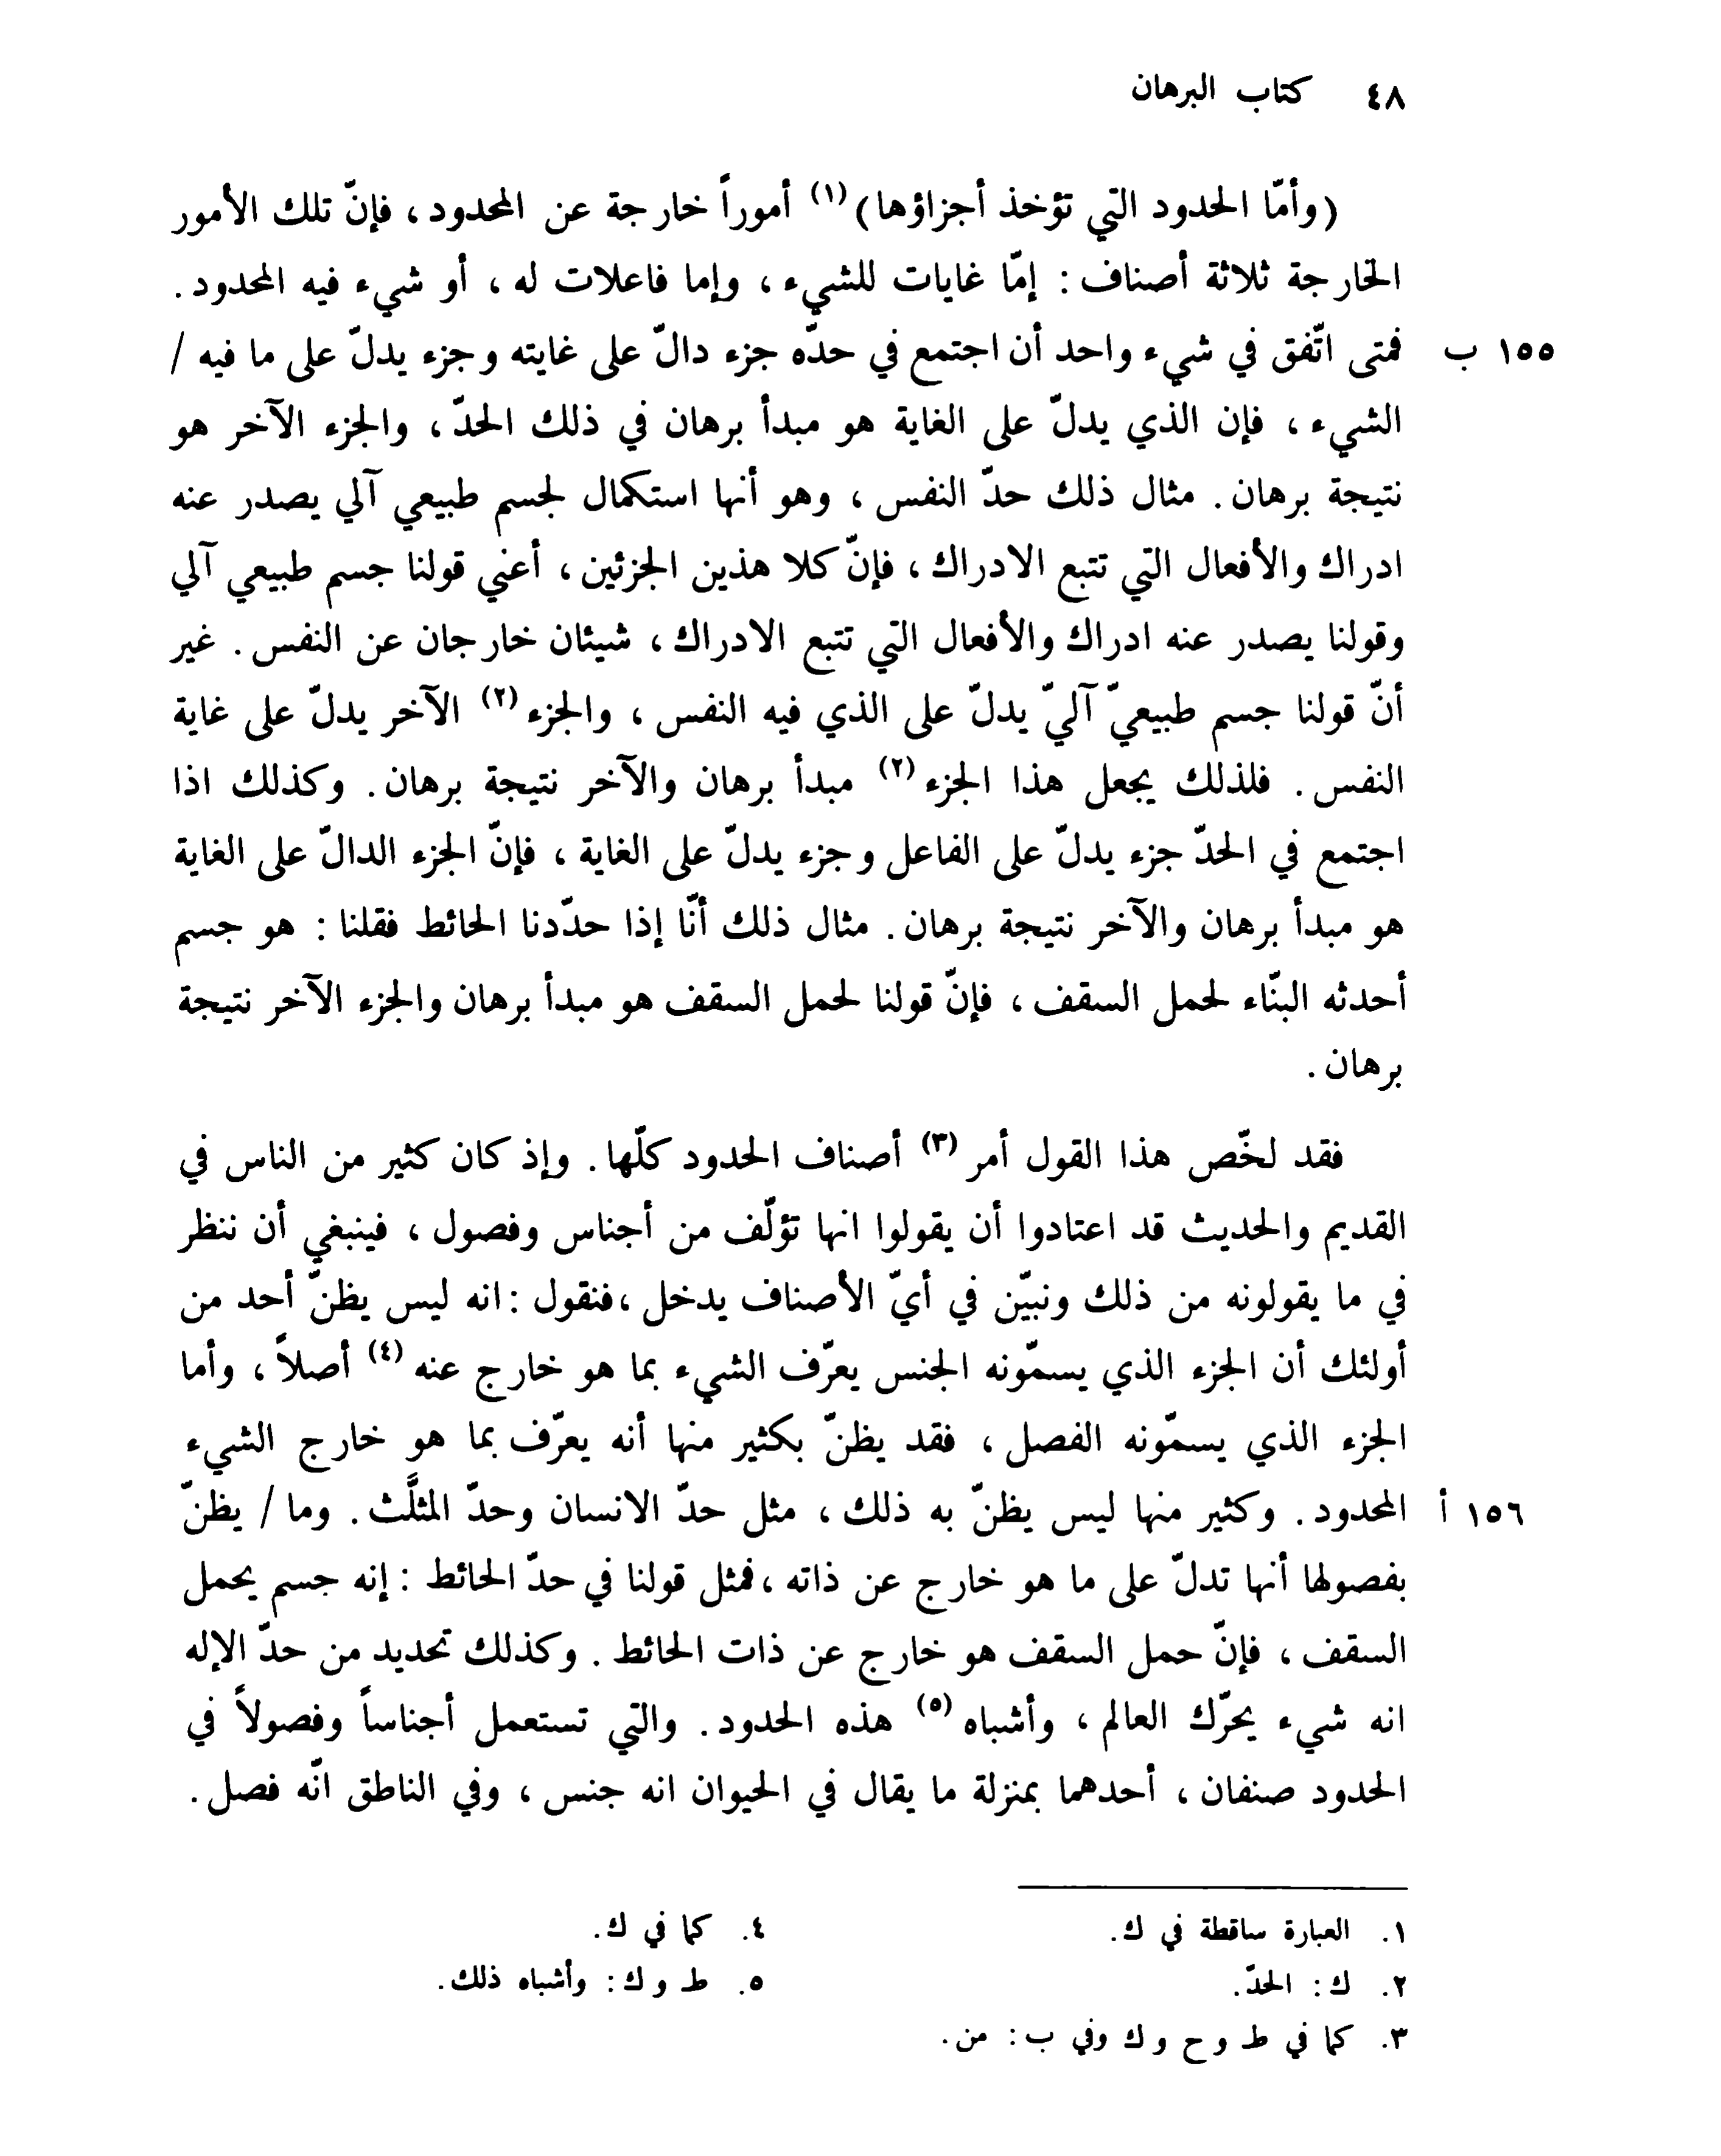 ٤٨ كتاب البرهان
(وأمّا الحدود التي تؤخذ أجزاؤها)(١) أموراً خارجة عن المحدود ، فإنّ تلك الأمور
الخارجة ثلاثة أصناف : إمّا غايات للشيء ، وإما فاعلات له ، أو شيء فيه المحدود .
١٥٥ ب فمتى اتّفق في شيء واحد أن اجتمع في حدّه جزء دالّ على غايته وجزء يدلّ على ما فيه /
الشيء ، فإن الذي يدلّ على الغاية هو مبدأ برهان في ذلك الحدّ ، والجزء الآخر هو
نتيجة برهان . مثال ذلك حدّ النفس ، وهو أنها استكمال لجسم طبيعي آلي يصدر عنه
ادراك والأفعال التي تتبع الادراك ، فإنّ كلا هذين الجزئين ، أعني قولنا جسم طبيعي آلي
وقولنا يصدر عنه ادراك والأفعال التي تتبع الادراك ، شيئان خارجان عن النفس . غير
أنّ قولنا جسم طبيعيّ آليّ يدلّ على الذي فيه النفس ، والجزء (٢) الآخر يدلّ على غاية
النفس . فلذلك يجعل هذا الجزء (٢) مبدأ برهان والآخر نتيجة برهان . وكذلك اذا
اجتمع في الحدّ جزء يدلّ على الفاعل وجزء يدلّ على الغاية ، فإنّ الجزء الدالّ على الغاية
هو مبدأ برهان والآخر نتيجة برهان . مثال ذلك أنّا إذا حدّدنا الحائط فقلنا : هو جسم
أحدثه البنّاء لحمل السقف ، فإنّ قولنا لحمل السقف هو مبدأ برهان والجزء الآخر نتيجة
برهان .
فقد لخّص هذا القول أمر (٣) أصناف الحدود كلّها . وإذ كان كثير من الناس في
القديم والحديث قد اعتادوا أن يقولوا انها تؤلّف من أجناس وفصول ، فينبغي أن ننظر
في ما يقولونه من ذلك ونبيّن في أيّ الأصناف يدخل ، فنقول : انه ليس يظنّ أحد من
أولئك أن الجزء الذي يسمّونه الجنس يعرّف الشيء بما هو خارج عنه (٤) أصلاً ، وأما
الجزء الذي يسمّونه الفصل ، فقد يظنّ بكثير منها أنه يعرّف بما هو خارج الشيء
١٥٦ أ المحدود . وكثير منها ليس يظنّ به ذلك ، مثل حدّ الانسان وحدّ المثلَّث . وما / يظنّ
بفصولها أنها تدلّ على ما هو خارج عن ذاته ، فمثل قولنا في حدّ الحائط : إنه جسم يحمل
السقف ، فإنّ حمل السقف هو خارج عن ذات الحائط . وكذلك تحديد من حدّ الإله
انه شيء يحرّك العالم ، وأشباه (٥) هذه الحدود . والتي تستعمل أجناساً وفصولاً في
الحدود صنفان ، أحدهما بمنزلة ما يقال في الحيوان انه جنس ، وفي الناطق انّه فصل .
١. العبارة ساقطة في ك.
٢. ك : الحدّ.
٣. كما في ط و ح و ك وفي ب : من.
٤. كما في ك.
٥. ط و ك : وأشباه ذلك.